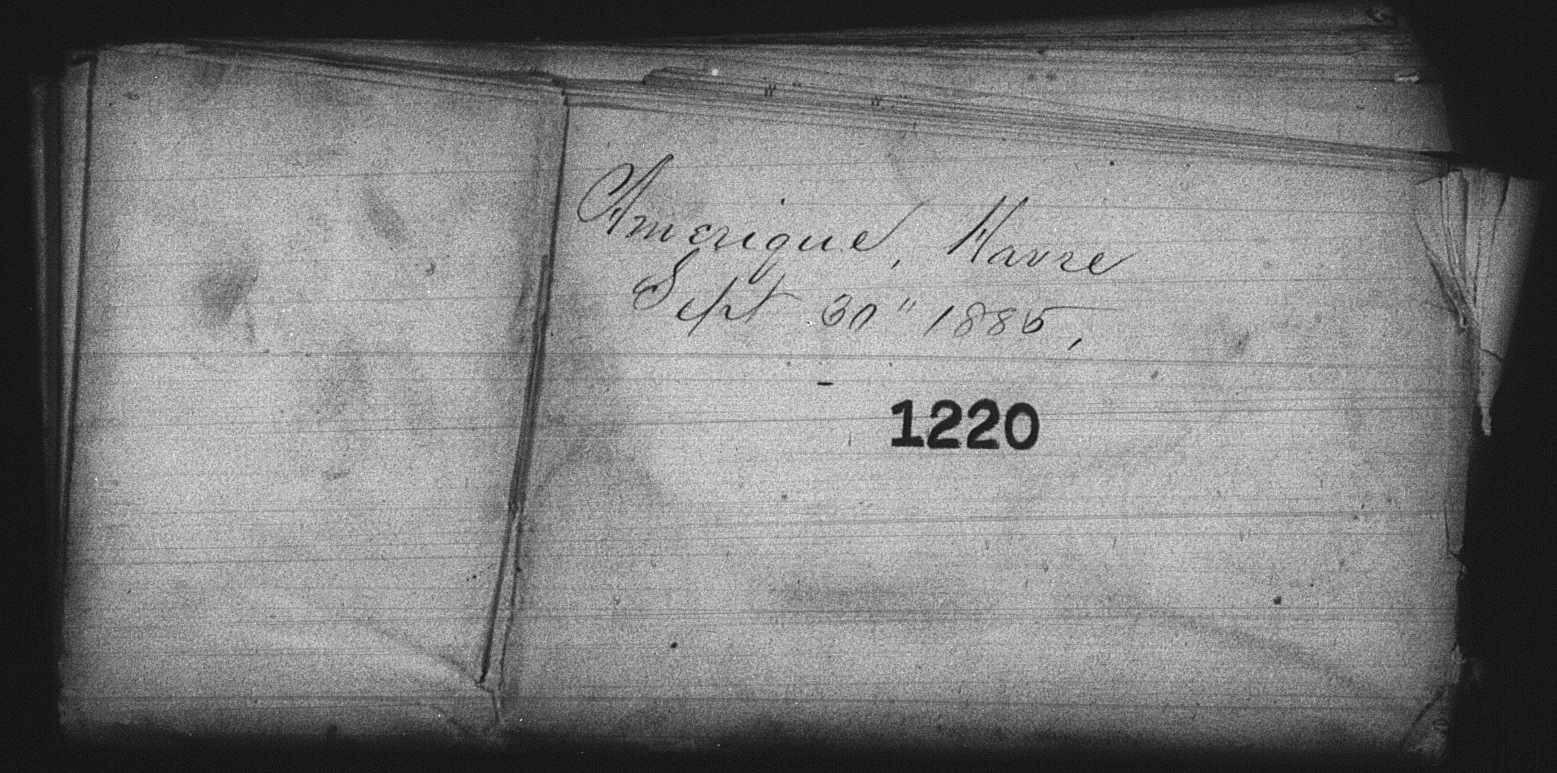 Amerique, Havre
Sept 30" 1885,
1220